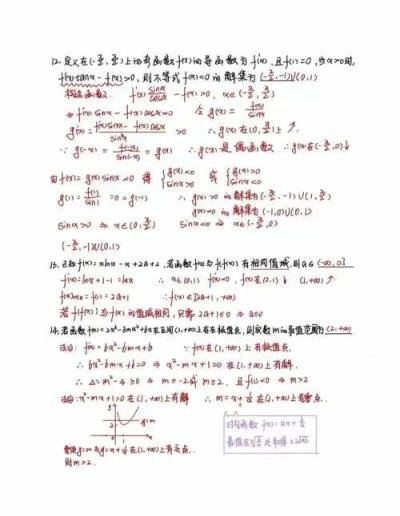 12. 定义在(-π/2, π/2)上的奇函数f(x)的导函数为f'(x), 且f(1)=0, 当x>0时,
f'(x)tanx - f(x)>0, 则不等式f(x)<0的解集为(-π/2,-1)∪(0,1)
构造函数. f'(x) sinx/cosx - f(x)>0, x∈(-π/2, π/2)
⇒ f'(x)sinx - f(x)cosx>0 令 g(x) = f(x)/sinx
g'(x) = f'(x)sinx - f(x)cosx / sin²x >0 ∴ g(x)在(0, π/2)上↑.
∵ g(-x) = f(-x)/sin(-x) = g(x) ∴ g(x)是偶函数 ∴ g(x)在(-π/2,0)↓
由f(x)=g(x)sinx<0 得 { g(x)<0 sinx>0 或 { g(x)>0 sinx<0
g(1) = f(1)/sin1 =0=g(-1) ∴ g(x)>0的解集为(-π/2,-1)∪(1,π/2)
g(x)<0的解集为(-1,0)∪(0,1)
sinx>0 ⇒ x∈(0,π/2) sinx<0 ⇒ x∈(-π/2,0)
(-π/2,-1)∪(0,1)
13. 已知f(x)=xlnx-x+2a+2, 若函数f(x)与f(f(x))有相同值域, 则a∈(-∞,0]
f'(x)=lnx+1-1=lnx ∴ x∈(0,1) f'(x)<0, f(x)在(0,1)↓ (1,+∞)↗
f(x)min=f(1)=2a+1 ∴ f(x)∈[2a+1,+∞)
若f(f(x))与f(x)的值域相同, 只需2a+1≤1 ⇒ a≤0
14. 若函数f(x)=2x³-3mx²+6x在区间(1,+∞)上存在极值点, 则实数m的取值范围为(2,+∞)
法①: f'(x)=6x²-6mx+6 ∵ f(x)在(1,+∞)上有极值点.
∴ 6x²-6mx+6=0 ⇒ x²-mx+1=0在(1,+∞)上有解.
∴ Δ=m²-4>0 ⇒ m<-2或m>2, 且f'(1)<0 ⇒ m>2
法②: x²-mx+1=0在(1,+∞)上有解 ∴ m=x+1/x在(1,+∞)上有零点.
y=m
看成y=m与y=x+1/x在(1,+∞)上有交点.
则m>2.
对勾函数 f(x)=ax+b/x